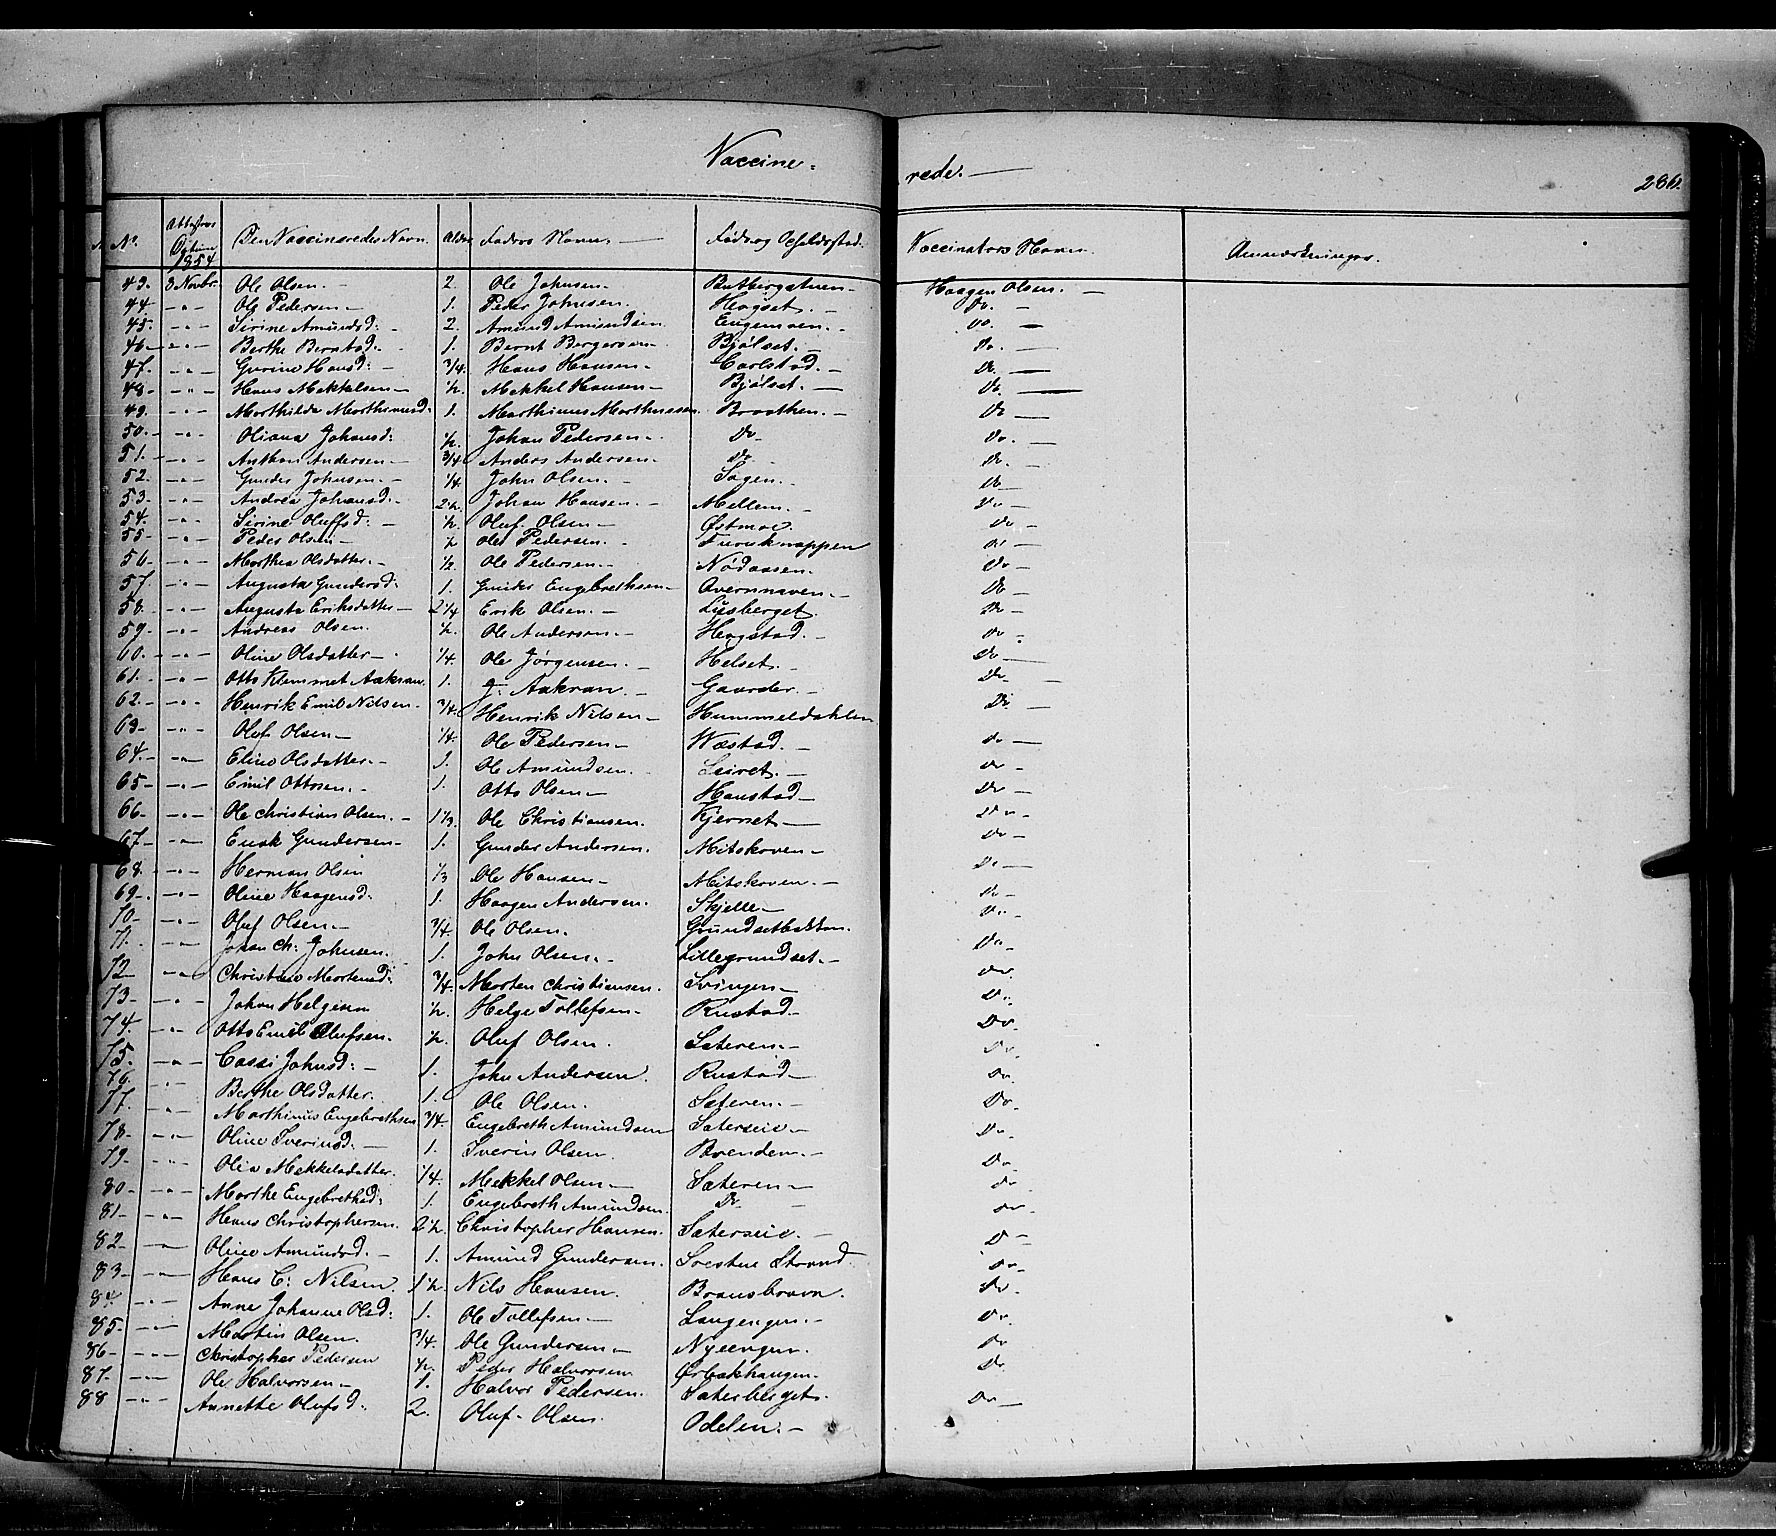 Vaccine- rede. —
286.
No. Attestens Datum 1854 Den Vaccineredes Navn. Alder. Faders Navn. Føde og Opholdssted. Vaccinators Navn. Anmærkninger.
43. 3 Novbr. Ole Olsen. 2. Ole Johnsen. Haagen Olsen. —
44 — " — Ole Pedersen. 1. Peder Johnsen. Hogset. Do.
45. — " — Sirine Amundsd: 2. Amund Amundsen. Engemoen. Do.
46 — " — Berthe Berntsd. 1. Bernt Bergersen. Bjølset. Do.
47. — " — Gurine Hansd: 3/4. Hans Hansen. Carlstad. Do.
48 — " — Hans Mekkelsen 1/2. Mekkel Hansen Bjølset. Do.
49. — " — Marthilde Marthinusd: 1. Marthinus Marthinssen. Braathen. Do
50. — " — Oliana Johansd: 1/2. Johan Pedersen. Do Do.
51. — " — Anthon Andersen 3/4 Anders Andersen. Do Do.
52. — " — Gunder Johnsen. 1/4. John Olsen. Sagen. Do
53. — " — Andrea Johansd. 2 1/2. Johan Hansen. Mellem. Do
54. — " — Sirine Oluffsd: 1/2. Oluf Olsen Østmoe Do
55 — " — Peder Olsen 1/2 Ole Pedersen. Furuknappen Do
56. — " — Marthea Olsdatter. 1/2. Ole Pedersen. Nødaasen. Do
57. — " — Augusta Gundersd: 1. Gunder Engebrethsen Overmoen. Do
58. — " — Augusta Eriksdatter 2 1/4 Erik Olsen. Lysberget. Do
59. — " — Andreas Olsen. 1/2. Ole Andersen. Hogstad. Do
60. — " — Oline Olsdatter 1/4. Ole Jørgensen. Helset. Do
61. — " — Otto Klemmet Aakran. 1. J: Aakran. Gaarder. Do
62. — " — Henrik Emil Nilsen. 3/4. Henrik Nilsen Hummeldahlen Do.
63 — " — Oluf Olsen 1/4. Ole Pedersen Wæstad. Do
64. — " — Eline Olsdatter. 1. Ole Amundsen. Leiret. Do
65 — " — Emil Ottosen. 1. Otto Olsen Hanstad Do
66. — " — Ole Christian Olsen. 1 1/3. Ole Christiansen. Kjernet Do
67. — " — Enok Gundersen 1. Gunder Andersen. Mitskoven Do
68. — " — Herman Olsen 1/3 Ole Hansen Mitskoven. Do
69. — " — Oline Haagensd: 1. Haagen Andersen. Skjelle Do
70 — " — Oluf Olsen. 3/4. Ole Olsen. Grundsetbakken. Do
71. — " — Johan Ch: Johnsen. 1. John Olsen. Lillegrundset. Do
72 — " — Christine Mortensd: 3/4. Morten Christiansen. Svingen Do.
73. — " — Johan Helgesen 1/2. Helge Tollefsen Rustad Do.
74. — " — Otto Emil Olufsen. 1/2. Oluf Olsen. Sæteren. Do.
75. — " — Cassi Johnsd: 1. John Andersen. Rustad Do.
76. — " — Berthe Olsdatter. 1. Ole Olsen. Sæteren. Do
77. — " — Marthinus Engebrethsen 3/4. Engebreth Amundsen Sæterseie Do.
78. — " — Oline Iverinsd. 1. Iverin Olsen. Brenden. Do.
79. — " — Olia Mekkelsdatter. 1/4. Mekkel Olsen Sæteren Do
80 — " — Marthe Engebrethsd: 1. Engebreth Amundsen Do Do
81 — " — Hans Christophersen. 2 1/2. Christopher Hansen. Sæterseie. Do
82 — " — Oline Amundsd. 1. Amund Gundersen. Strand. Do
83 — " — Hans C: Nilsen. 1 1/2 Nils Hansen. Do
84 — " — Anne Johanne Olsd: 1. Ole Tollefsen Langengen. Do.
85. — " — Martin Olsen. 3/4. Ole Gundersen Nyeengen. Do.
86 — " — Christopher Pedersen 1/2. Peder Halvorsen Ørbækhaugen. Do
87. — " — Ole Halvorsen 1. Halvor Pedersen. Sæterberget. Do.
88 — " — Annette Olufsd: 2. Oluf Olsen. Odelen. Do